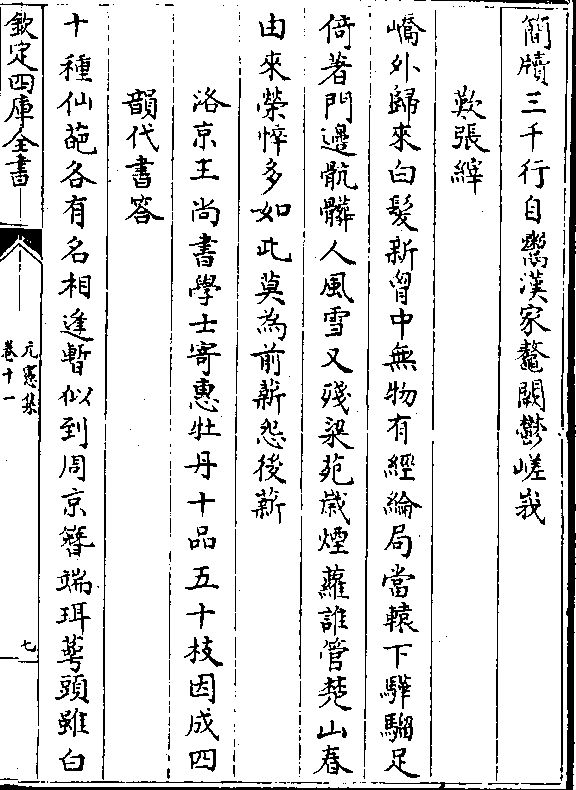 簡牘三千行自鬻漢家鼇闕鬱嵯峩
歎張繹
嶠外歸來白髮新胷中無物有經綸局當轅下驊騮足
倚著門邊骯髒人風雪又殘梁苑歲煙蘿誰管楚山春
由來榮悴多如此莫為前薪怨後薪
洛京王尚書學士寄惠牡丹十品五十枝因成四
韻代書答
十種仙葩各有名相逢暫似到周京簪端珥萼頭雖白
欽定四庫全書
元憲集
卷十一
七